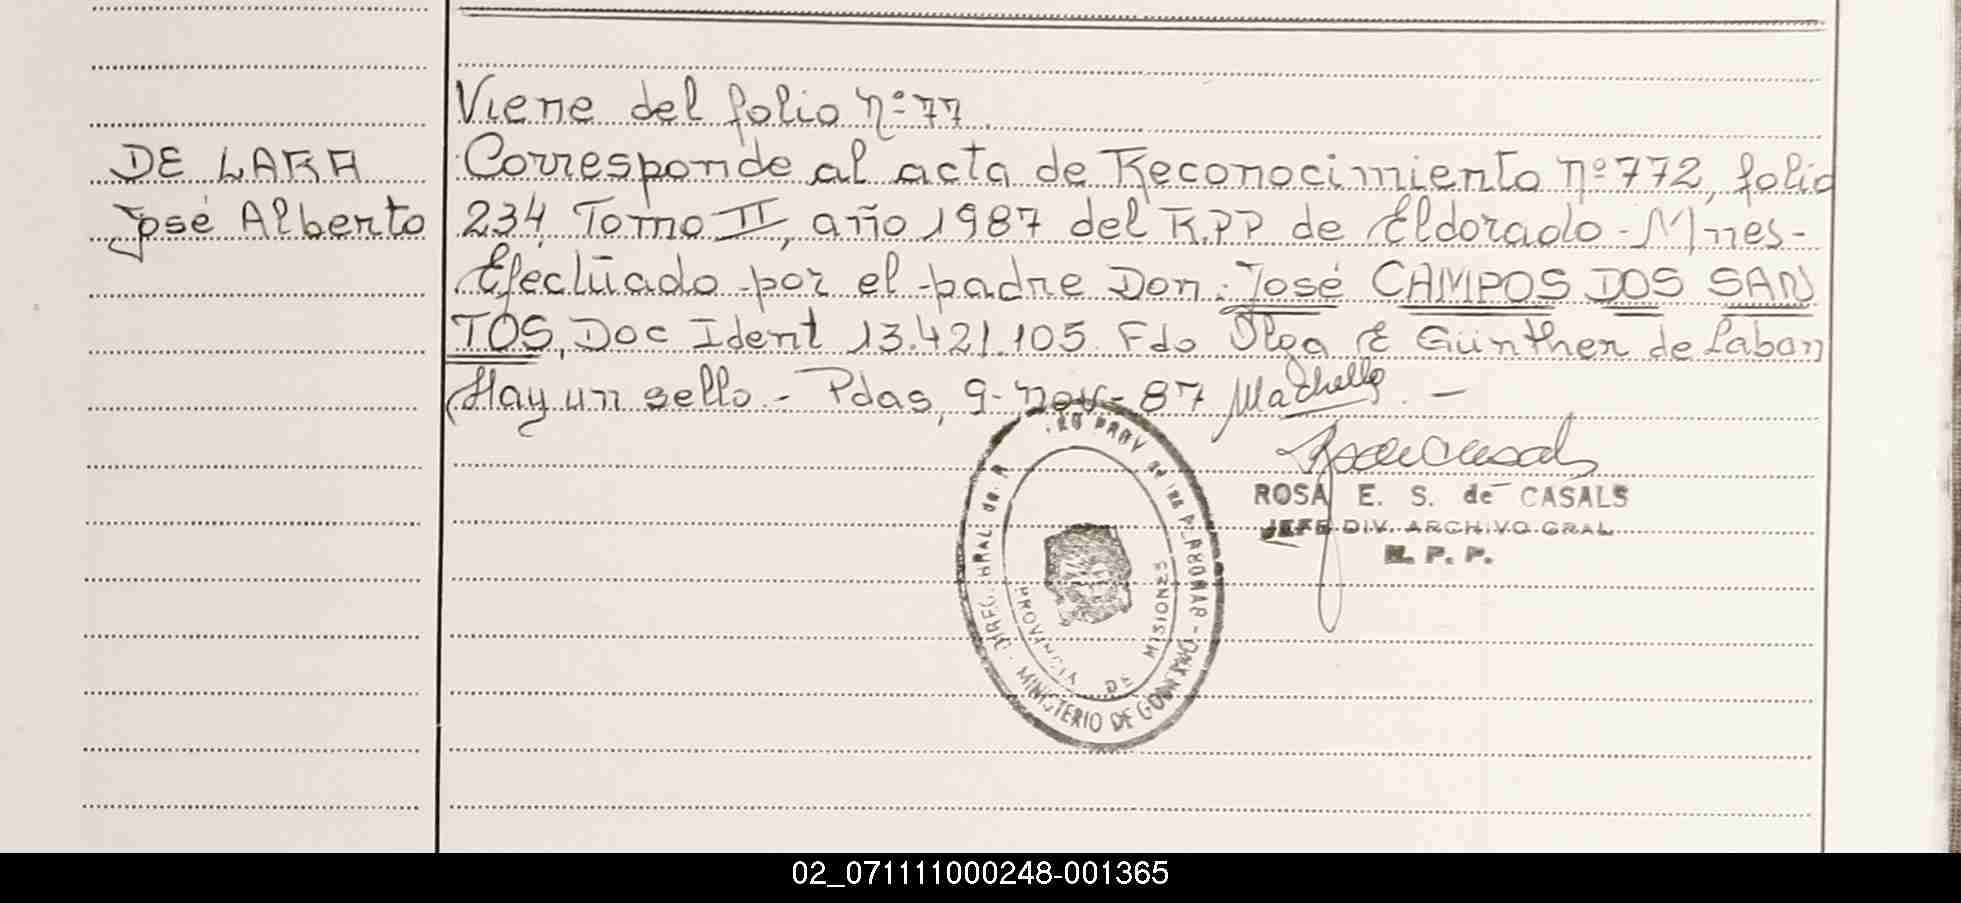 Viene del folio nº 77
DE LARA
José Alberto
Corresponde al acta de Reconocimiento nº 772, folio
234, Tomo II, año 1987 del R.P.P de Eldorado - Mnes -
Efectūado por el padre Don: José CAMPOS DOS SAN
TOS, Doc Ident 13.421.105. Fdo Olga E Günther de Laban
Hay un sello - Pdas, 9- nov - 87 -
ROSA E. S. de CASALS
JEFE DIV. ARCHIVO GRAL
R. P. P.
PROVINCIA DE MISIONES
MINISTERIO DE
02_071111000248-001365